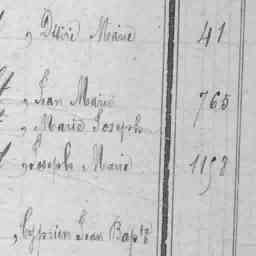 , Désiré Marie 41
, Jean Marie 765
, Marie Joseph
, Joseph Marie 1198
, Cyprien Jean Bapte